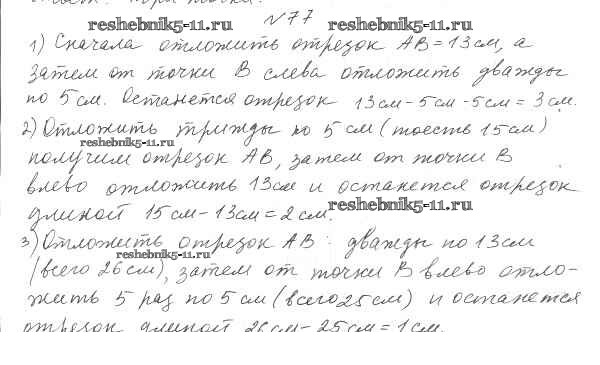 №77
reshebnik5-11.ru reshebnik5-11.ru
1) Сначала отложить отрезок AB = 13 см, а
затем от точки B слева отложить дважды
по 5 см. Останется отрезок 13 см - 5 см - 5 см = 3 см.
2) Отложить трижды по 5 см (тоесть 15 см)
reshebnik5-11.ru
получим отрезок AB, затем от точки B
влево отложить 13 см и останется отрезок
длиной 15 см - 13 см = 2 см.
reshebnik5-11.ru
3) Отложить отрезок AB: дважды по 13 см
reshebnik5-11.ru
(всего 26 см), затем от точки B влево отло-
жить 5 раз по 5 см (всего 25 см) и останется
отрезок длиной 26 см - 25 см = 1 см.